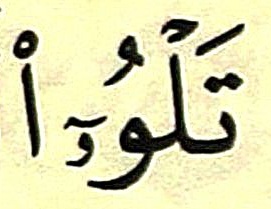 تَلْوُۥٓاْ